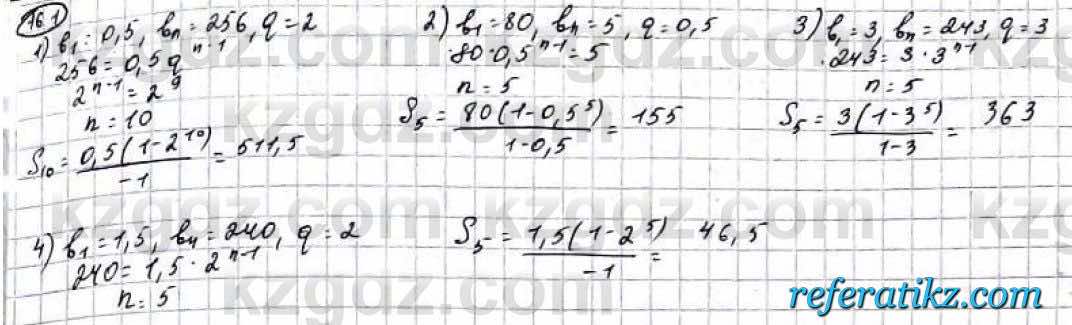 161
1) b₁ = 0,5, bₙ = 256, q = 2
256 = 0,5q^(n-1)
2^(n-1) = 2^9
n = 10
S₁₀ = 0,5(1-2^10) / -1 = 511,5
2) b₁ = 80, bₙ = 5, q = 0,5
80·0,5^(n-1) = 5
n = 5
S₅ = 80(1-0,5^5) / 1-0,5 = 155
3) b₁ = 3, bₙ = 243, q = 3
243 = 3·3^(n-1)
n = 5
S₅ = 3(1-3^5) / 1-3 = 363
4) b₁ = 1,5, bₙ = 240, q = 2
240 = 1,5·2^(n-1)
n = 5
S₅ = 1,5(1-2^5) / -1 = 46,5
referatikz.com